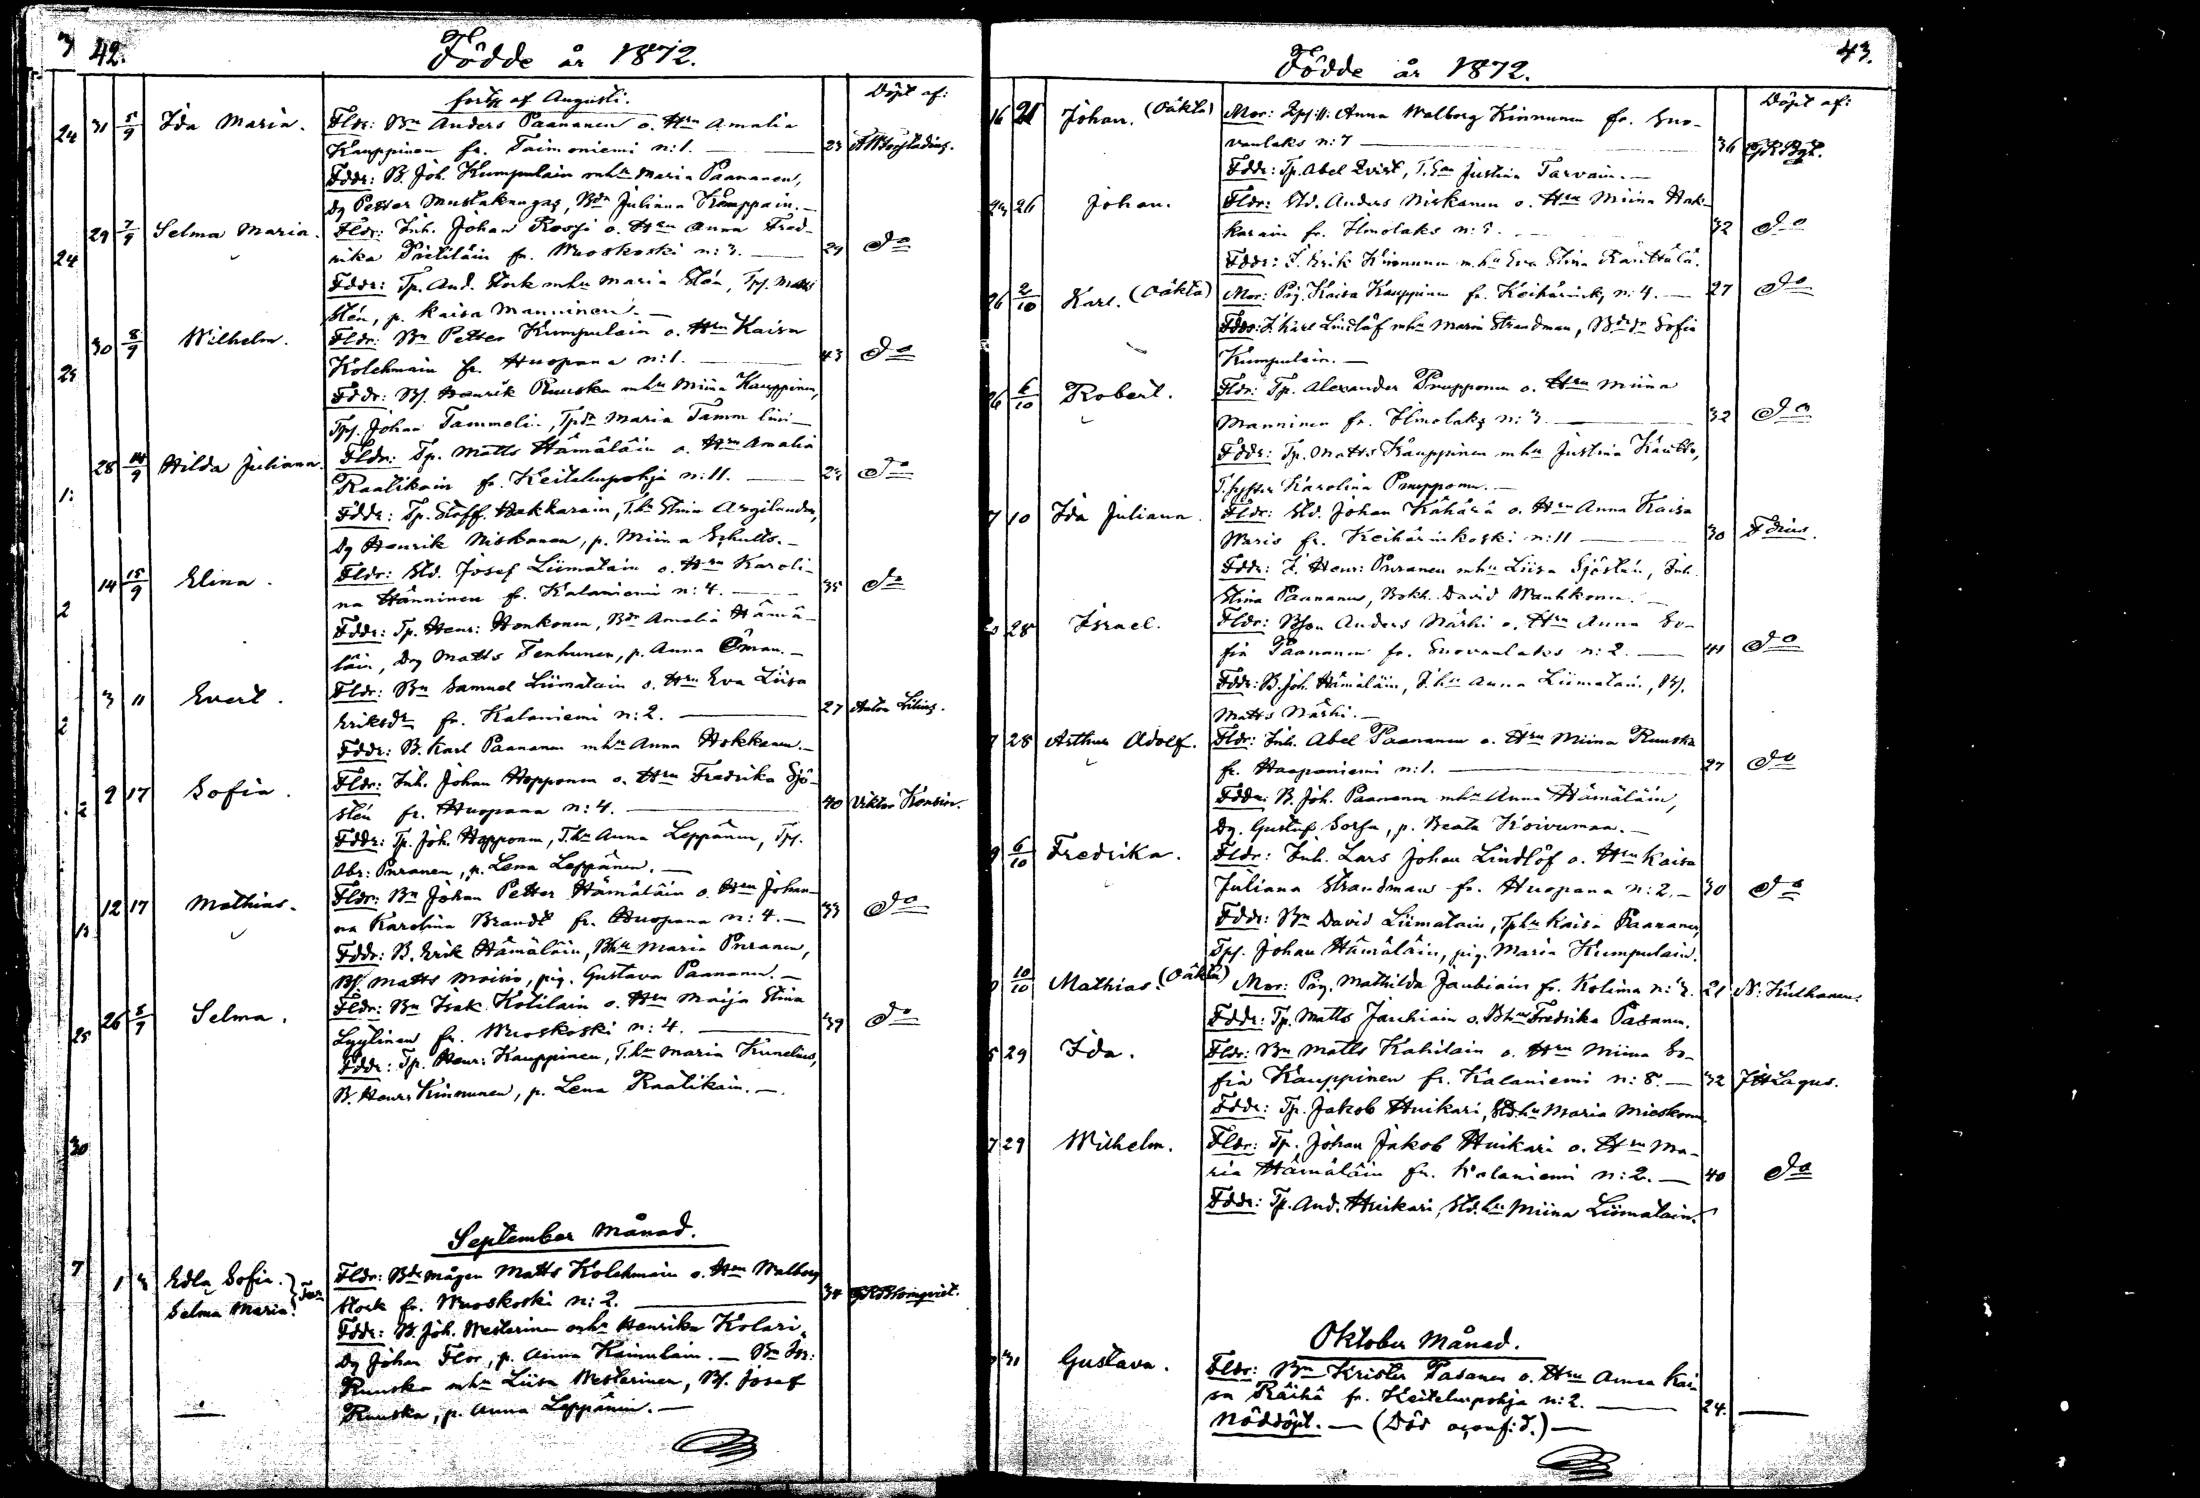 42.
Födde år 1872.
forts. af Augusti.
Döpt af:
31 5/9 Ida Maria. Fldr: Bn Anders Paananen o. Hru Amalia
Kauppinen fr. Taimoniemi n:1. — 23
Fddr: B. Joh. Kumpulain mhu Maria Paananen,
Dg Petter Mustakangas, Bdr Juliana Kauppain. —
29 7/9 Selma Maria. Fldr: Inh. Johan Rossi o. Hru Anna Fred-
rika Pielitäin fr. Wuoskoski n:3. — 29 do
Fddr: Tp. And. Stork mhu Maria Stén, Tps. Matts
Stén, p. Kaisa Manninen. —
30 8/9 Wilhelm. Fldr: Bn Petter Kumpulain o. Hru Kaisa
Kolehmain fr. Huopana n:1. — 43 do
Fddr: Bs. Henrik Ruuska mhu Miina Kauppinen,
Tps. Johan Tammeli-, Tpdr Maria Tamm lini —
28 14/9 Hilda Juliana. Fldr: Tp. Matts Hämäläin o. Hru Amalia
Raatikain fr. Keitelepohja n:11. — 24 do
Fddr: Tp. Staff. Hakkarain, T.hu Stina Argilander,
Dg Henrik Niskanen, p. Miina Schults. —
14 15/9 Elina. Fldr: Std. Josef Liimatain o. Hru Karoli-
na Hänninen fr. Kalaniemi n:4. — 35 do
Fddr: Tp. Henr: Honkonen, Bdr Amalia Hämä-
läin, Dng Matts Tenhunen, p. Anna Öman. —
3 11 Evert. Fldr: Bn Samuel Liimatain o. Hru Eva Liisa
Eriksdr fr. Kalaniemi n:2. — 27 Anton Lilius.
Fddr: B. Karl Paananen mhu Anna Hokkanen. —
9 17 Sofia. Fldr: Inh. Johan Hopponen o. Hru Fredrika Sjö-
stén fr. Huopana n:4. — 40 Viktor Konsin.
Fddr: Tp. Joh. Hopponen, T.hu Anna Leppänen, Tps.
Abr: Puranen, p. Lena Leppänen. —
12 17 Mathias. Fldr: Bn Johan Petter Hämäläin o. Hru Johan-
na Karolina Brandt fr. Huopana n:4. — 33 do
Fddr: B. Erik Hämäläin, Bhu Maria Puranen,
Bs Matts Moisio, pig. Gustava Paananen. —
26 5/7 Selma. Fldr: Bn Isak Kotilain o. Hru Maija Stina
Lyytinen fr. Wuoskoski n:4. — 39 do
Fddr: Tp. Henr: Kauppinen, T.hu Maria Kunelius,
B. Henr: Kinnunen, p. Lena Raatikain. —
September Månad.
1 3 Edla Sofia. Selma Maria. Fldr: Bdr mågen Matts Kolehmain o. Hru Walborg
Stork fr. Wuoskoski n:2. — 34 GRBlomqvist.
Fddr: B. Joh. Westerinen mhu Henrika Kolari,
Dg Johan Flor, p. Anna Kainulain. —
Ruuska mhu Liisa Westerinen, Bs. Josef
Ruuska, p. Anna Leppänen. —
43.
Födde år 1872.
Döpt af:
16 21 Johan. (Oäkta) Mor: Anna Walborg Kinnunen fr. Suo-
vanlaks n:7 — 36
Fddr: Tp. Abel Qvist, Justina Tarvain. —
26 Johan. Fldr: Std. Anders Niskanen o. Hru Miina Hak-
karain fr. Ilmolaks n:5. — 32 do
Fddr: I. Erik Kinnunen m.hu Eva Stina Räihttälä.
26 2/10 Karl. (Oäkta) Mor: Pig. Kaisa Kauppinen fr. Keihärinkoski n:4. — 27 do
Fddr: I. Karl Lindlöf mhu Maria Strandman, Bdr Sofia
Kumpulain. —
26 6/10 Robert. Fldr: Tp. Alexander Pruupponen o. Hru Miina
Manninen fr. Ilmolaks n:3. — 32 do
Fddr: Tp. Matts Kauppinen mhu Justina Kautto,
Karolina Pruupponen. —
7 10 Ida Juliana. Fldr: Std. Johan Kähärä o. Hru Anna Kaisa
Waris fr. Keihärinkoski n:11 — 30
Fddr: I. Henr: Puranen mhu Liisa Sjöstén, Inh.
Stina Paananen, Bokh. David Wauhkonen. —
28 Israel. Fldr: Bson Anders Närhi o. Hru Anna So-
fia Paananen fr. Suovanlaks n:2. — 41 do
Fddr: B. Joh. Hämäläin, Anna Liimatain, Bs.
Matts Närhi. —
7 28 Arthur Adolf. Fldr: Inh. Abel Paananen o. Hru Miina Ruuska
fr. Haapaniemi n:1. — 27 do
Fddr: B. Joh. Paananen mhu Anna Hämäläin,
Dg. Gustaf Sorsa, p. Beata Koivumaa. —
9 6/10 Fredrika. Fldr: Inh. Lars Johan Lindlöf o. Hru Kaisa
Juliana Strandman fr. Huopana n:2. — 30 do
Fddr: Bn David Liimatain, Tphu Kaisa Paananen,
Tps. Johan Hämäläin, pig. Maria Kumpulain.
10/10 Mathias. (Oäkta) Mor: Pig. Mathilda Jauhiain fr. Kolima n:3. 21 N: Kulhanen.
Fddr: Tp. Matts Jauhiain o. Bhu Fredrika Pasanen.
5 29 Ida. Fldr: Bn Matts Kahilain o. Hru Miina So-
fia Kauppinen fr. Kalaniemi n:8. — 32 JHLagus.
Fddr: Tp. Jakob Huikari, Std.hu Maria Mieskonen.
7 29 Wilhelm. Fldr: Tp. Johan Jakob Huikari o. Hru Ma-
ria Hämäläin fr. Kalaniemi n:2. — 40 do
Fddr: Tp. And. Huikari, Std.hu Miina Liimatain.
Oktober Månad.
31 Gustava. Fldr: Bn Krister Pasanen o. Hru Anna Kai-
sa Räihä fr. Keitelepohja n:2. — 24. —
Nöddöpt. — (Död